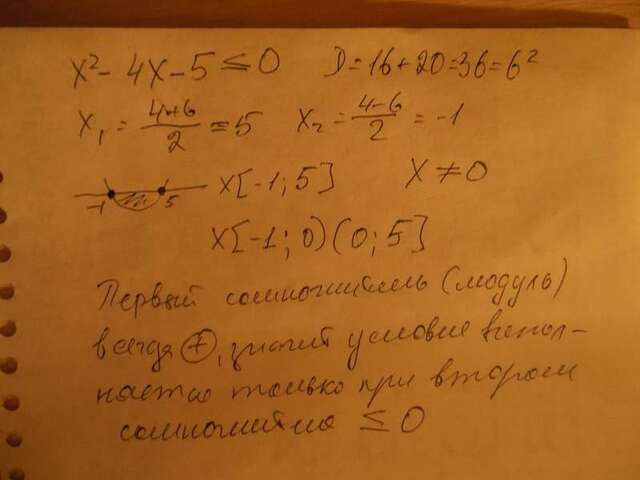 x² - 4x - 5 ≤ 0 D = 16 + 20 = 36 = 6²
x₁ = (4+6)/2 = 5 x₂ = (4-6)/2 = -1
-1 5 x[-1; 5] x ≠ 0
x[-1; 0)(0; 5]
Первый сомножитель (модуль)
всегда +, значит условие выпол-
няется только при втором
сомножителе ≤ 0